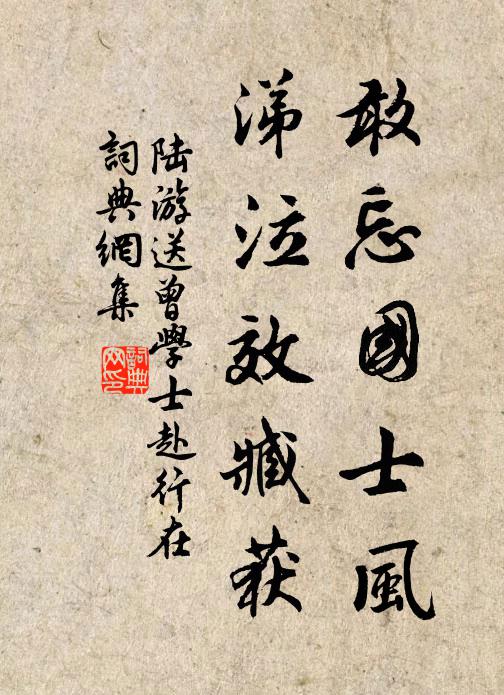 敢忘國士風
涕泣效臧获
陸游送曾學士赴行在
詞典網集
詞典
网印